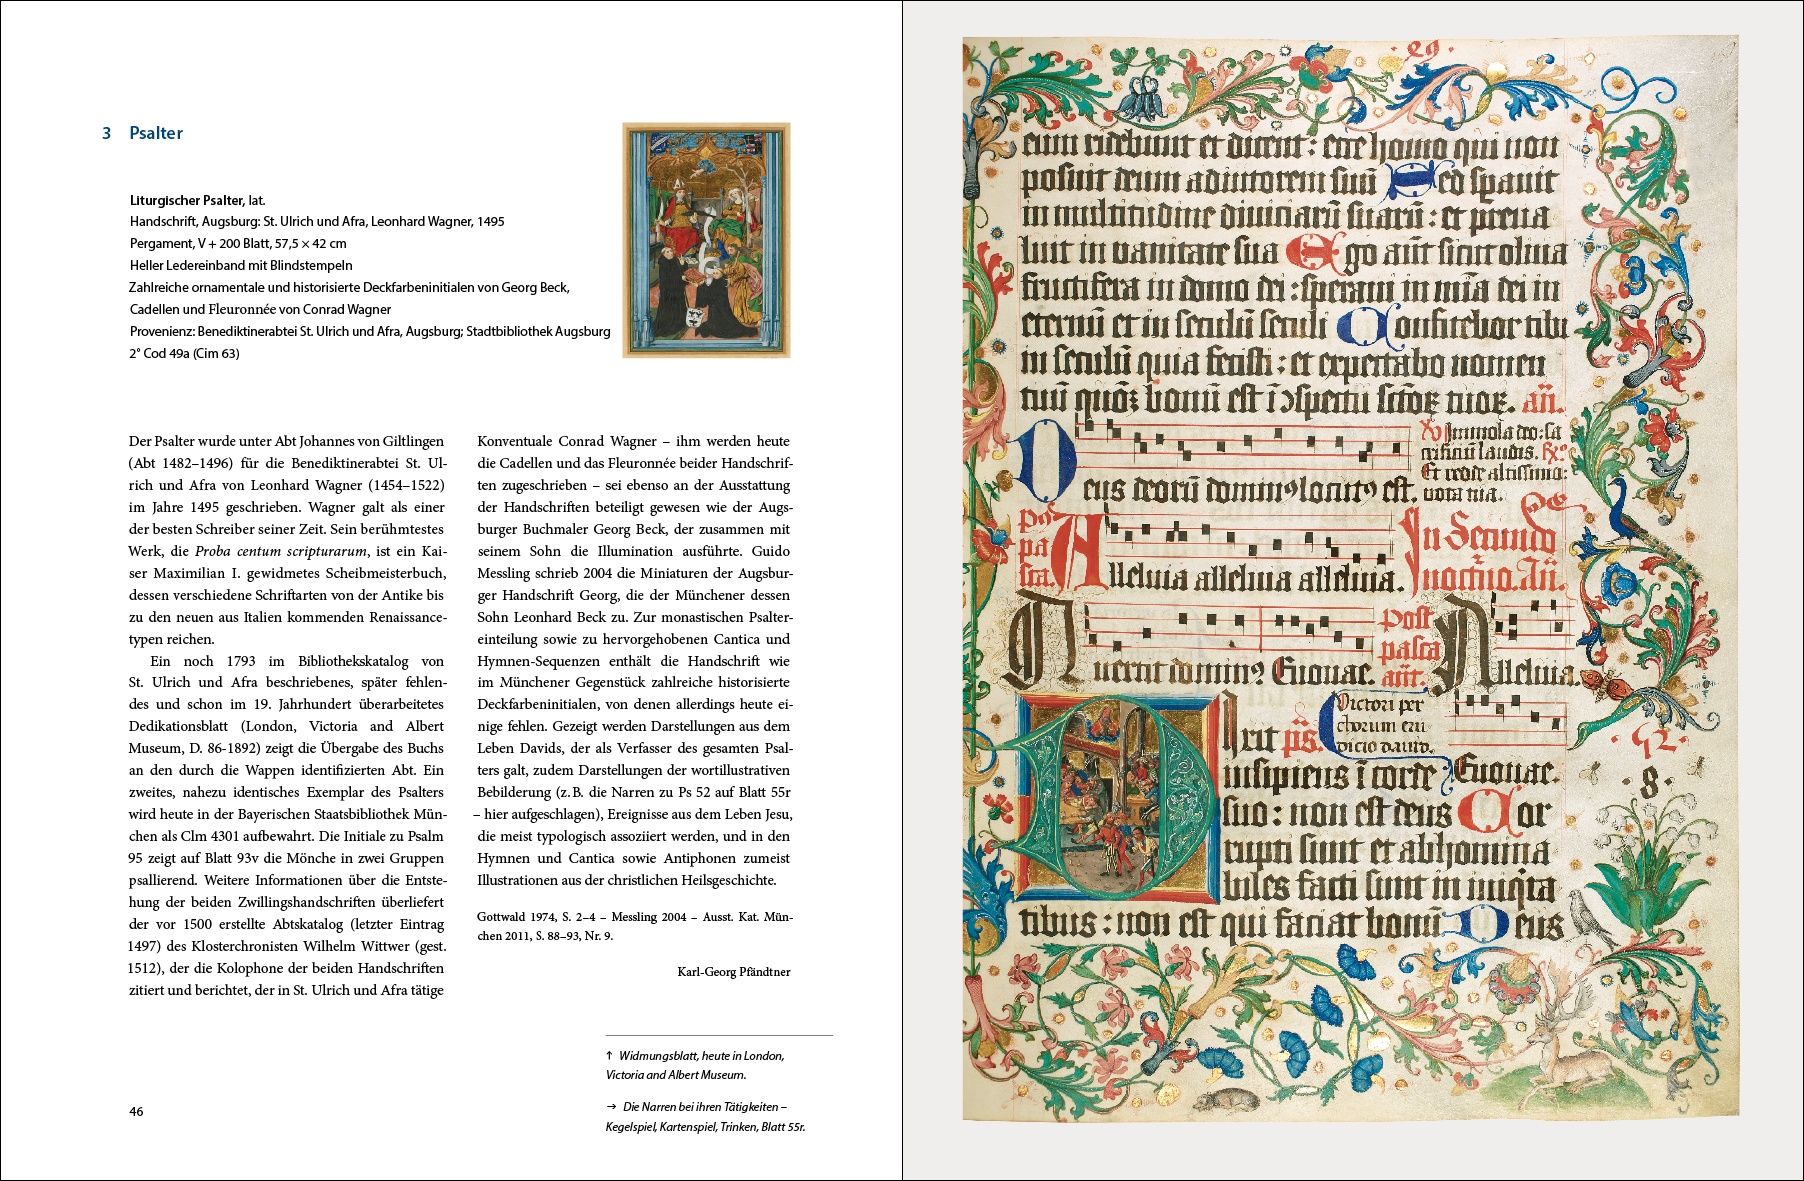 3 Psalter
Liturgischer Psalter, lat.
Handschrift, Augsburg: St. Ulrich und Afra, Leonhard Wagner, 1495
Pergament, V + 200 Blatt, 57,5 × 42 cm
Heller Ledereinband mit Blindstempeln
Zahlreiche ornamentale und historisierte Deckfarbeninitialen von Georg Beck,
Cadellen und Fleuronnée von Conrad Wagner
Provenienz: Benediktinerabtei St. Ulrich und Afra, Augsburg; Stadtbibliothek Augsburg
2° Cod 49a (Cim 63)
Der Psalter wurde unter Abt Johannes von Giltlingen
(Abt 1482–1496) für die Benediktinerabtei St. Ul-
rich und Afra von Leonhard Wagner (1454–1522)
im Jahre 1495 geschrieben. Wagner galt als einer
der besten Schreiber seiner Zeit. Sein berühmtestes
Werk, die Proba centum scripturarum, ist ein Kai-
ser Maximilian I. gewidmetes Scheibmeisterbuch,
dessen verschiedene Schriftarten von der Antike bis
zu den neuen aus Italien kommenden Renaissance-
typen reichen.
Ein noch 1793 im Bibliothekskatalog von
St. Ulrich und Afra beschriebenes, später fehlen-
des und schon im 19. Jahrhundert überarbeitetes
Dedikationsblatt (London, Victoria and Albert
Museum, D. 86-1892) zeigt die Übergabe des Buchs
an den durch die Wappen identifizierten Abt. Ein
zweites, nahezu identisches Exemplar des Psalters
wird heute in der Bayerischen Staatsbibliothek Mün-
chen als Clm 4301 aufbewahrt. Die Initiale zu Psalm
95 zeigt auf Blatt 93v die Mönche in zwei Gruppen
psallierend. Weitere Informationen über die Entste-
hung der beiden Zwillingshandschriften überliefert
der vor 1500 erstellte Abtskatalog (letzter Eintrag
1497) des Klosterchronisten Wilhelm Wittwer (gest.
1512), der die Kolophone der beiden Handschriften
zitiert und berichtet, der in St. Ulrich und Afra tätige
Konventuale Conrad Wagner – ihm werden heute
die Cadellen und das Fleuronnée beider Handschrif-
ten zugeschrieben – sei ebenso an der Ausstattung
der Handschriften beteiligt gewesen wie der Augs-
burger Buchmaler Georg Beck, der zusammen mit
seinem Sohn die Illumination ausführte. Guido
Messling schrieb 2004 die Miniaturen der Augsbur-
ger Handschrift Georg, die der Münchener dessen
Sohn Leonhard Beck zu. Zur monastischen Psalter-
einteilung sowie zu hervorgehobenen Cantica und
Hymnen-Sequenzen enthält die Handschrift wie
im Münchener Gegenstück zahlreiche historisierte
Deckfarbeninitialen, von denen allerdings heute ei-
nige fehlen. Gezeigt werden Darstellungen aus dem
Leben Davids, der als Verfasser des gesamten Psal-
ters galt, zudem Darstellungen der wortillustrativen
Bebilderung (z. B. die Narren zu Ps 52 auf Blatt 55r
– hier aufgeschlagen), Ereignisse aus dem Leben Jesu,
die meist typologisch assoziiert werden, und in den
Hymnen und Cantica sowie Antiphonen zumeist
Illustrationen aus der christlichen Heilsgeschichte.
Gottwald 1974, S. 2–4 – Messling 2004 – Ausst. Kat. Mün-
chen 2011, S. 88–93, Nr. 9.
Karl-Georg Pfändtner
↑ Widmungsblatt, heute in London,
Victoria and Albert Museum.
→ Die Narren bei ihren Tätigkeiten –
Kegelspiel, Kartenspiel, Trinken, Blatt 55r.
46
eum ridebunt et dicent : ecce homo qui non
posuit deum adiutorem suū Sed spauit
in multitudine diuiciarū suarū : et preua
luit in vanitate sua Ego aūt sicut oliua
fructifera in domo dei : speraui in mīa dei in
eternū et in seculū seculi Confitebor tibi
in seculū quia fecisti : et expectabo nomen
tuū bonū est añ.
Immola deo : sa
crificiū laudis.
Et redde altissimo :
vota tua.
Deus deorū locutꝰ est.
pa
Alleluia alleluia alleluia.
In Secundo
post
pasca
Auertit dominꝰ Euouae.
Alleluia.
Dixit ps.
Victori per
chorum eru
dicio dauid.
insipiens ī corde Euouae.
suo : non est deus Cor
rupti sunt et abhomina
biles facti sunt in iniqta
tibus : non est qui faciat bonū Deus
52
8